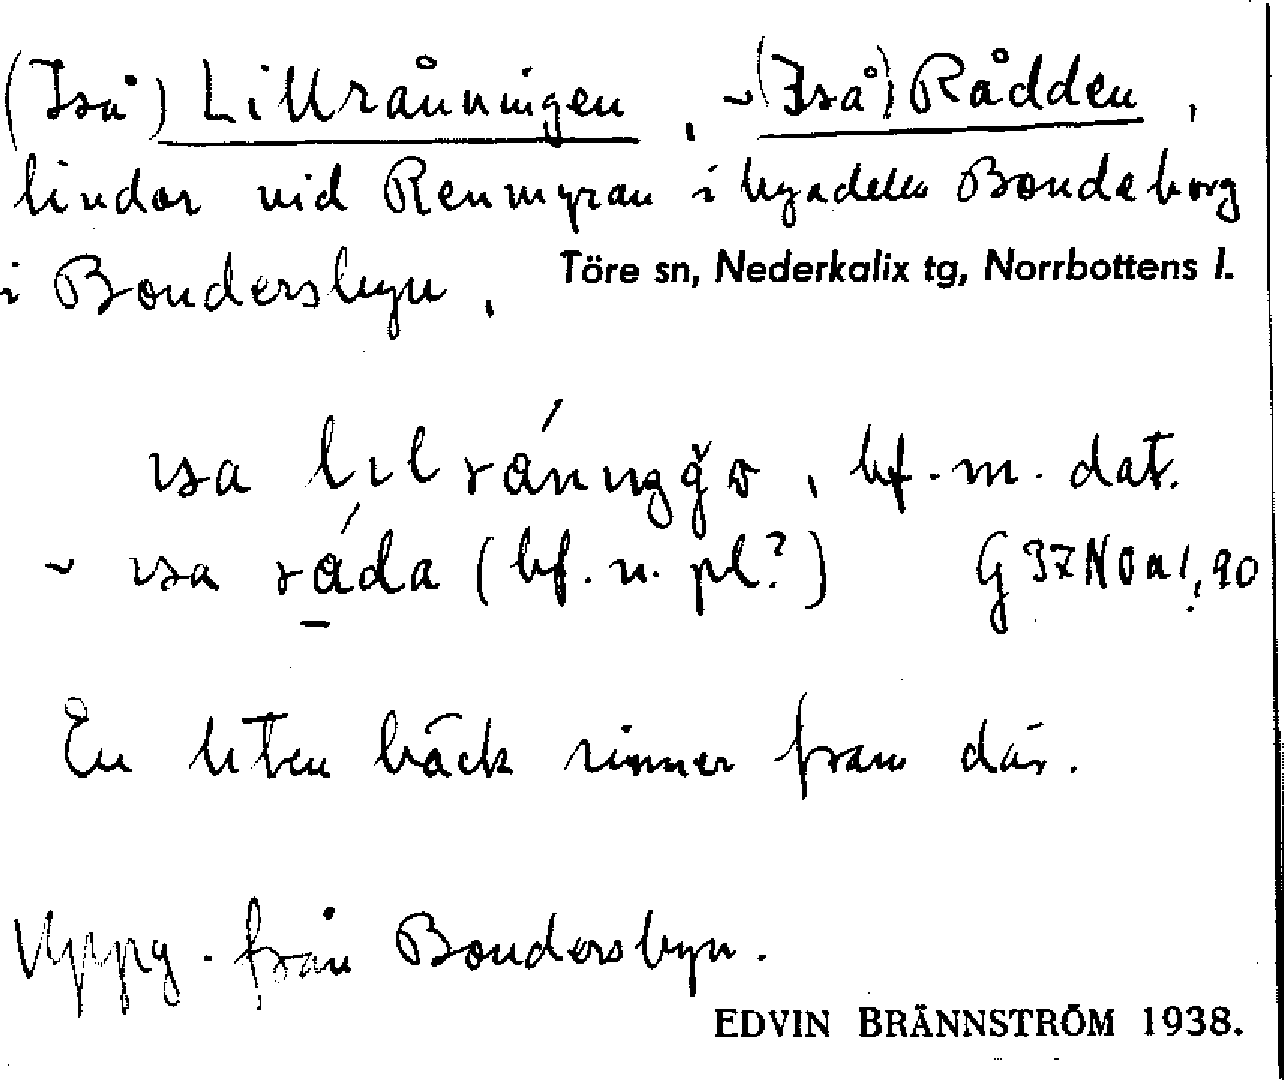 (Iså) Lillrånningen, ~ (Iså) Rådden,
lindor vid Renmyran i bydelen Bondeborg
i Bondersbyn. Töre sn, Nederkalix tg, Norrbottens l.
bf. m. dat.
~ ısa ráda (bf. n. pl?) G 37 N
En liten bäck rinner fram där.
Uppg. från Bondersbyn.
EDVIN BRÄNNSTRÖM 1938.